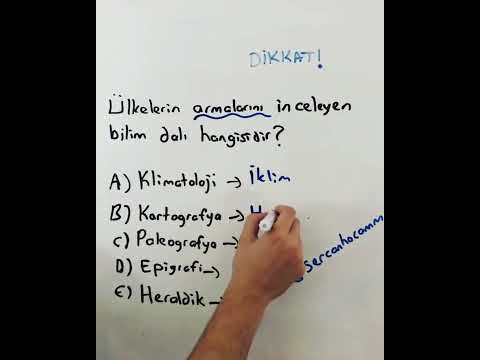 DİKKAT!
Ülkelerin armalarını inceleyen
bilim dalı hangisidir?
A) Klimatoloji → İklim
B) Kartografya → H
C) Paleografya →
D) Epigrafi →
E) Heraldik →
sercanhocamm